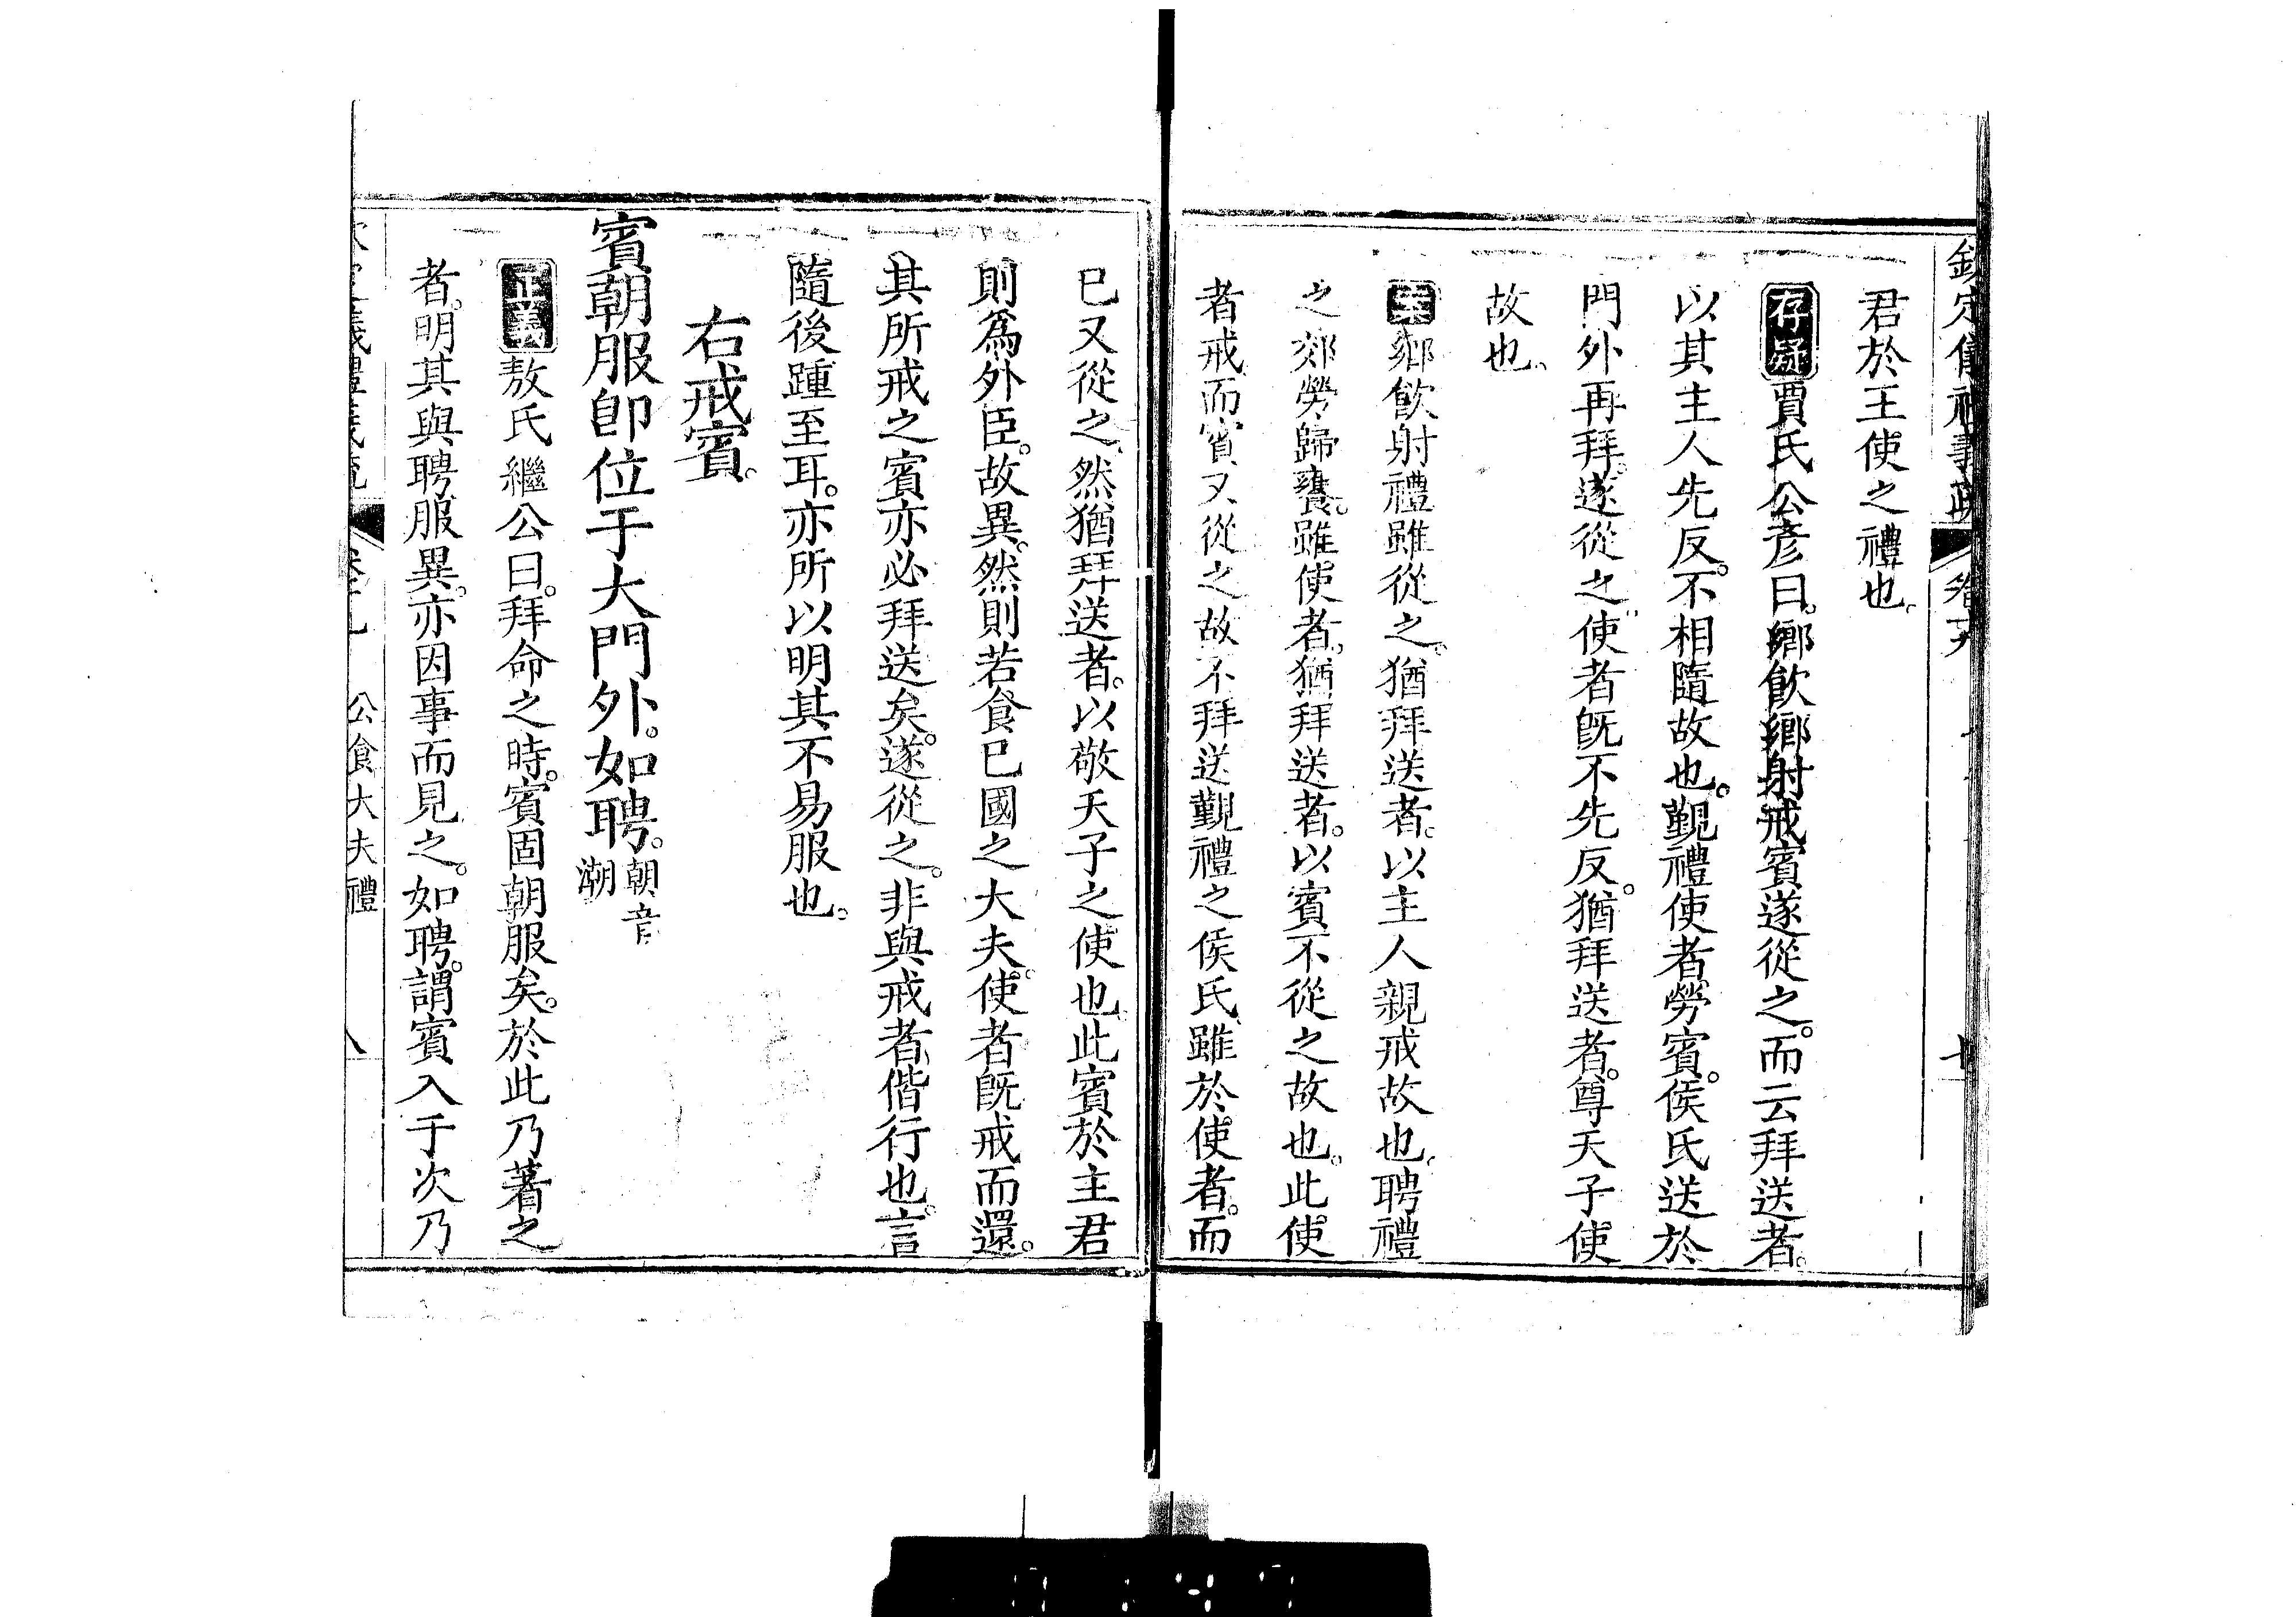 欽定儀禮義疏 卷十九
君於王使之禮也。
存疑賈氏公彦曰。鄉飮鄉射戒賓遂從之。而云拜送者。
以其主人先反。不相隨故也。覲禮使者勞賓。侯氏送於
門外再拜。遂從之使者旣不先反。猶拜送者。尊天子使
故也。
案鄉飮射禮雖從之。猶拜送者。以主人親戒故也。聘禮
之郊勞歸饔。雖使者。猶拜送者。以賓不從之故也。此使
者戒而賓又從之故不拜送覲禮之侯氏雖於使者。而
已又從之、然猶拜送者。以敬天子之使也。此賓於主君
則爲外臣。故異。然則若食已國之大夫。使者旣戒而還。
其所戒之賓亦必拜送矣。遂從之。非與戒者偕行也。言
隨後踵至耳。亦所以明其不易服也。
右戒賓。
賓朝服卽位于大門外。如聘。朝音
潮
正義敖氏繼公曰。拜命之時。賓固朝服矣。於此乃著之
者。明其與聘服異。亦因事而見之。如聘。謂賓入于次乃
公食大夫禮 八